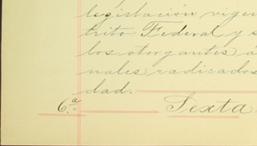 legislación vigen
trito Federal y s
los otorgantes á
nales radicados
dad.
6.ª Sexta